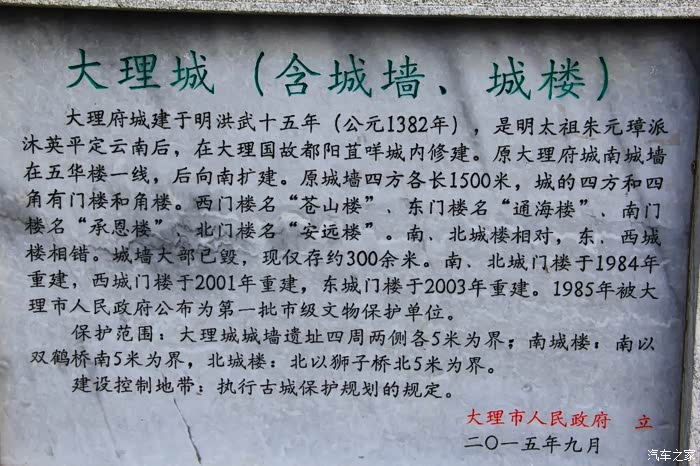 大理城（含城墙、城楼）
大理府城建于明洪武十五年（公元1382年），是明太祖朱元璋派
沐英平定云南后，在大理国故都阳苴咩城内修建。原大理府城南城墙
在五华楼一线，后向南扩建。原城墙四方各长1500米，城的四方和四
角有门楼和角楼。西门楼名“苍山楼”、东门楼名“通海楼”、南门
楼名“承恩楼”、北门楼名“安远楼”。南、北城楼相对，东、西城
楼相错。城墙大部已毁，现仅存约300余米。南、北城门楼于1984年
重建，西城门楼于2001年重建，东城门楼于2003年重建。1985年被大
理市人民政府公布为第一批市级文物保护单位。
保护范围：大理城城墙遗址四周两侧各5米为界；南城楼：南以
双鹤桥南5米为界，北城楼：北以狮子桥北5米为界。
建设控制地带：执行古城保护规划的规定。
大理市人民政府 立
二〇一五年九月
汽车之家